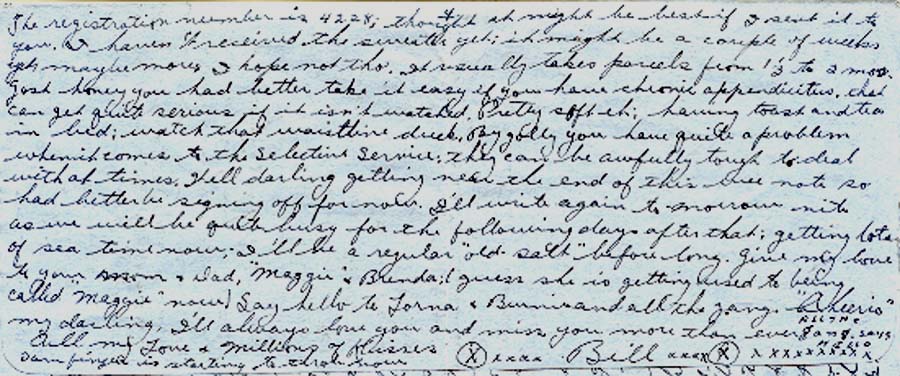 The registration number is 4228; thought it might be best if I sent it to
you. I haven't received the sweater yet; it might be a couple of weeks
yet, maybe more, I hope not tho. It usually takes parcels from 1½ to 2 mos.
Gosh honey you had better take it easy if you have chronic appendicitis, that
can get quite serious if it isn't watched. Pretty soft eh; having toast and tea
in bed; watch that waistline duck. By golly you have quite a problem
when it comes to the Selective Service; they can be awfully tough to deal
with at times. Well darling getting near the end of this wee note so
had better be signing off for now. I'll write again to-morrow nite
as we will be quite busy for the following days after that; getting lots
of sea time now; I'll be a regular "old salt" before long. Give my love
to your Mom & Dad, "Maggie" & Brenda (I guess she is getting used to being
called "Maggie" now) Say hello to Lorna & and all the gang. "Cheerio"
my darling, I'll always love you and miss you more than ever
All the gang says hello
All my Love & Millions of Kisses
finger is starting to throb now
X xxxx Bill xxxx X xxxxxxxxxx